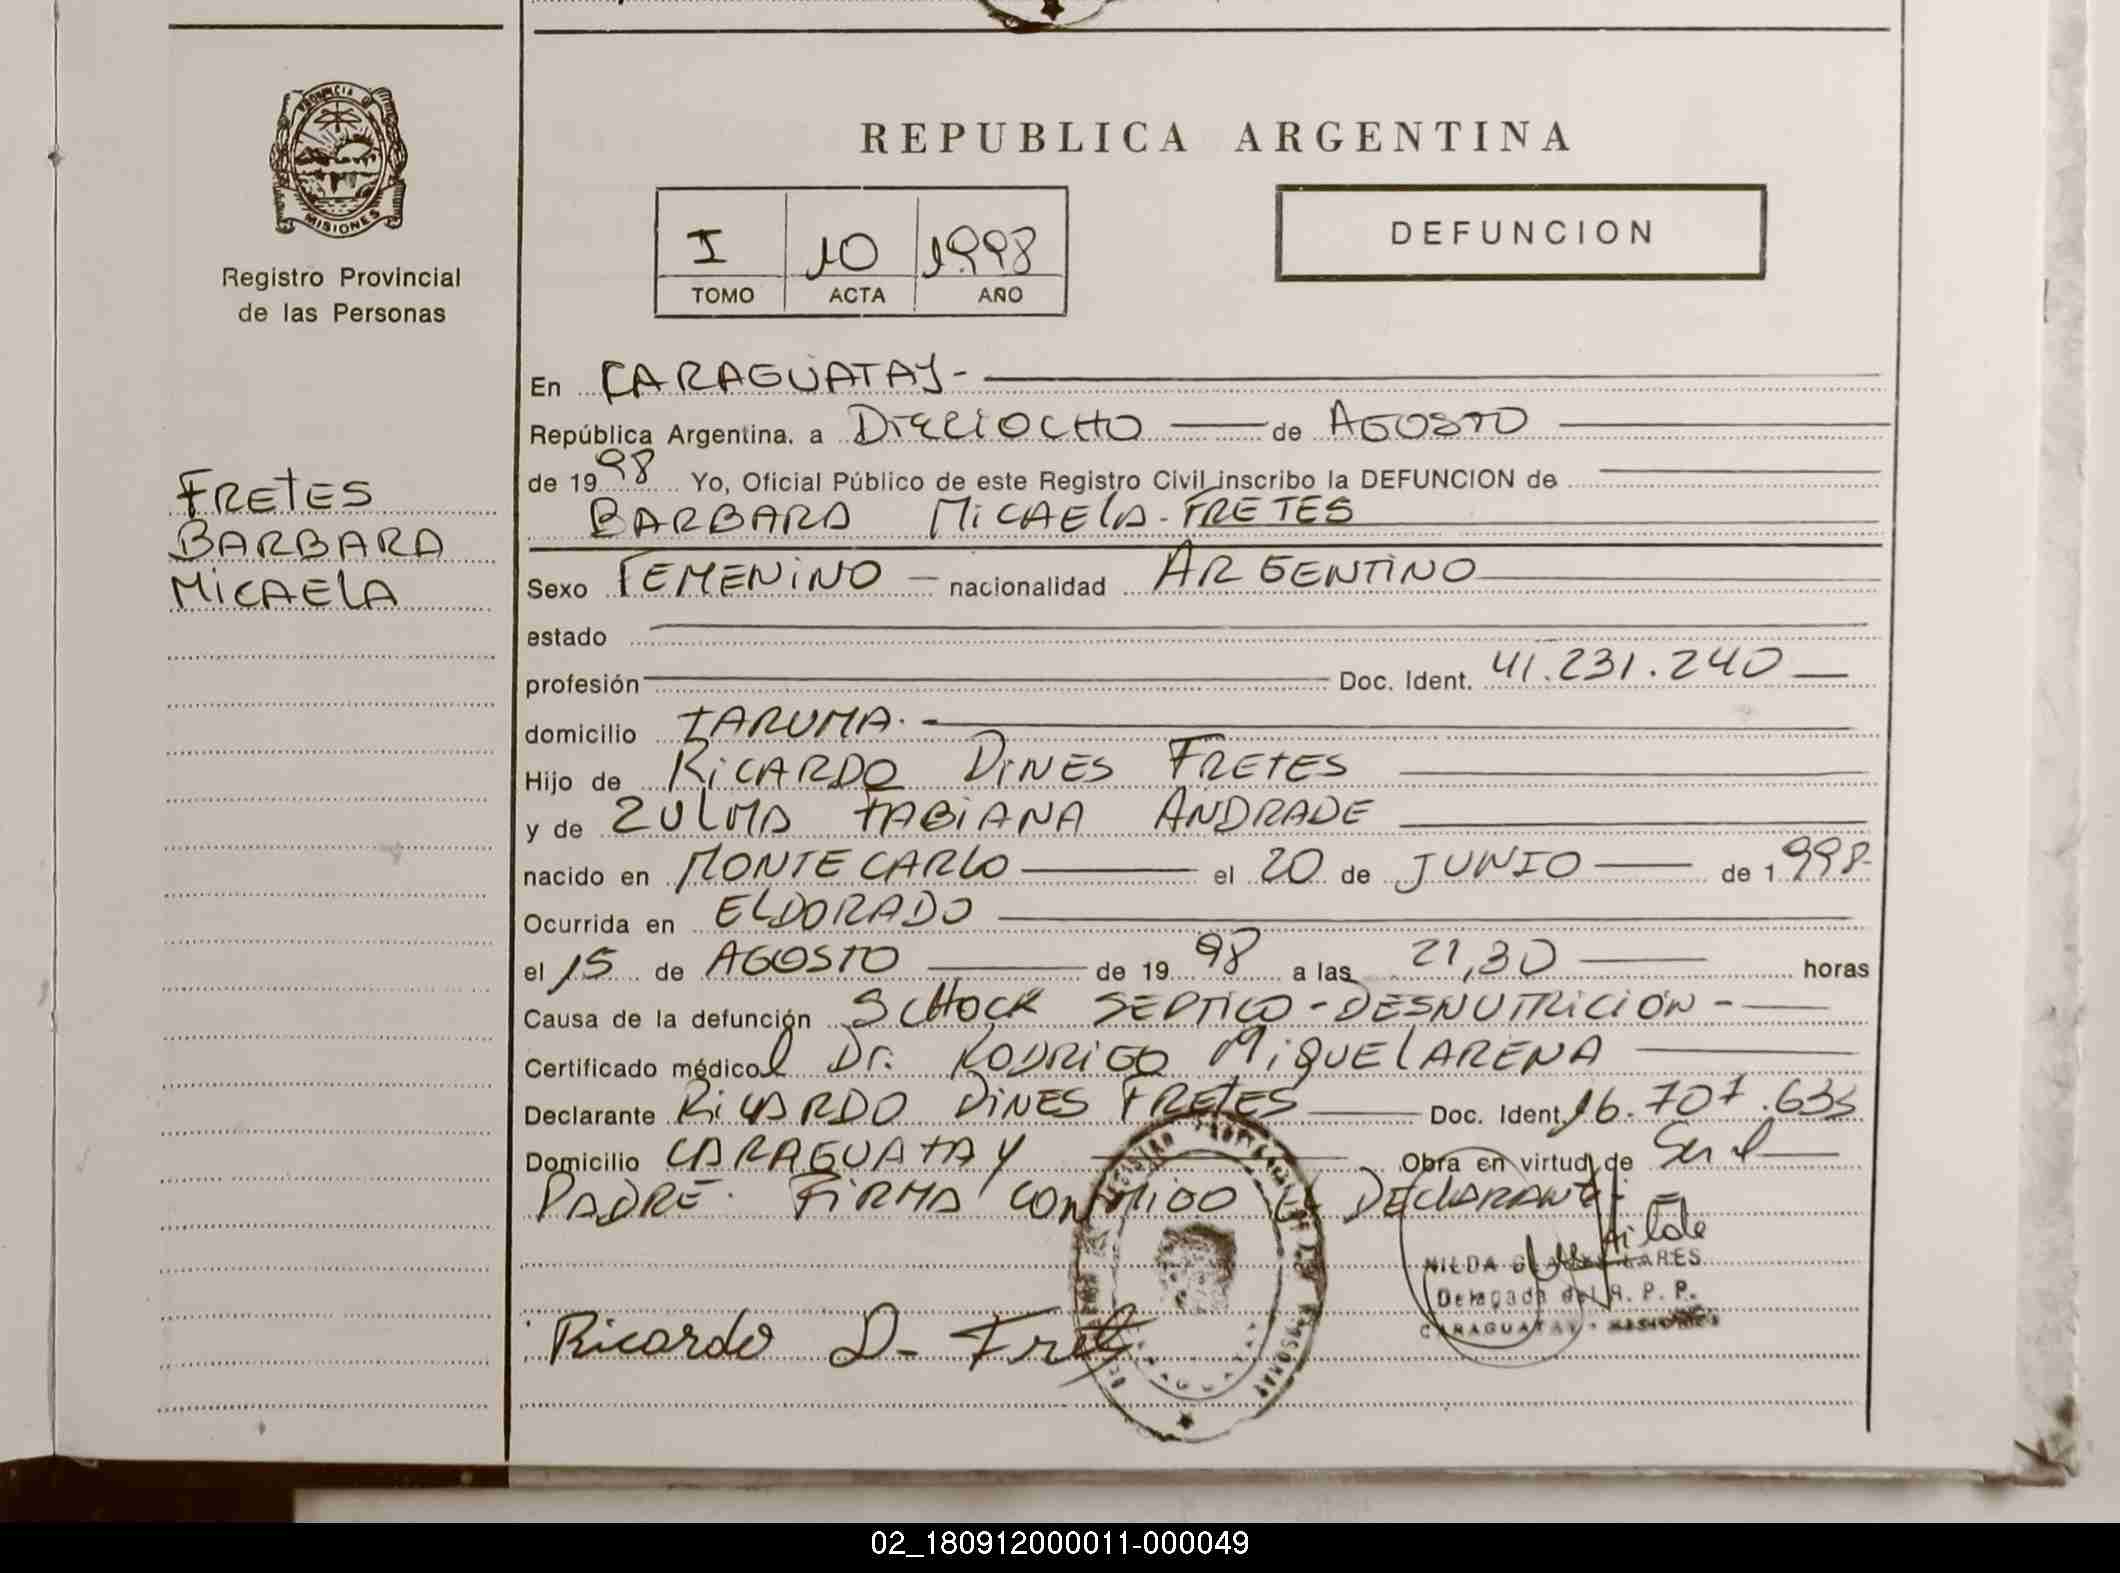 PROVINCIA DE
MISIONES
Registro Provincial
de las Personas
FRETES
BARBARA
MICAELA
REPUBLICA ARGENTINA
I 10 1998
TOMO ACTA AÑO
DEFUNCION
En CARAGUATAY-
República Argentina. a DIECIOCHO de AGOSTO
de 1998 Yo, Oficial Público de este Registro Civil inscribo la DEFUNCION de
BARBARA MICAELA FRETES
Sexo FEMENINO nacionalidad ARGENTINO
estado
profesión Doc. Ident. 41.231.240
domicilio TARUMA.
Hijo de RICARDO DINES FRETES
y de ZULMA FABIANA ANDRADE
nacido en MONTECARLO el 20 de JUNIO de 1998
Ocurrida en ELDORADO
el 15 de AGOSTO de 1998 a las 21,30 horas
Causa de la defunción SCHOCK SEPTICO-DESNUTRICIÓN-
Certificado médico Dr. RODRIGO MIQUELARENA
Declarante RICARDO DINES FRETES Doc. Ident. 16.707.633
Domicilio CARAGUATAY Obra en virtud de Ser el
PADRE. FIRMA CONMIGO EL DECLARANTE
Ricardo D. Fret
NILDA
Delegada del R. P. P.
CARAGUATAY - MISIONES
02_180912000011-000049